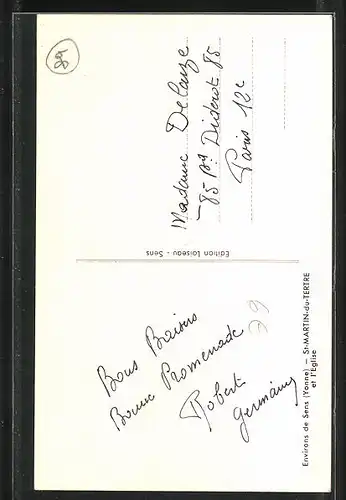 Environs de Sens (Yonne) — St-MARTIN-du-TERTRE
et l'Église
Bons Baisers
Bonne Promenade
Robert
Germaine
Edition Loiseau - Sens
Madame Delauze
85 Bd Diderot 85
Paris 12e
89